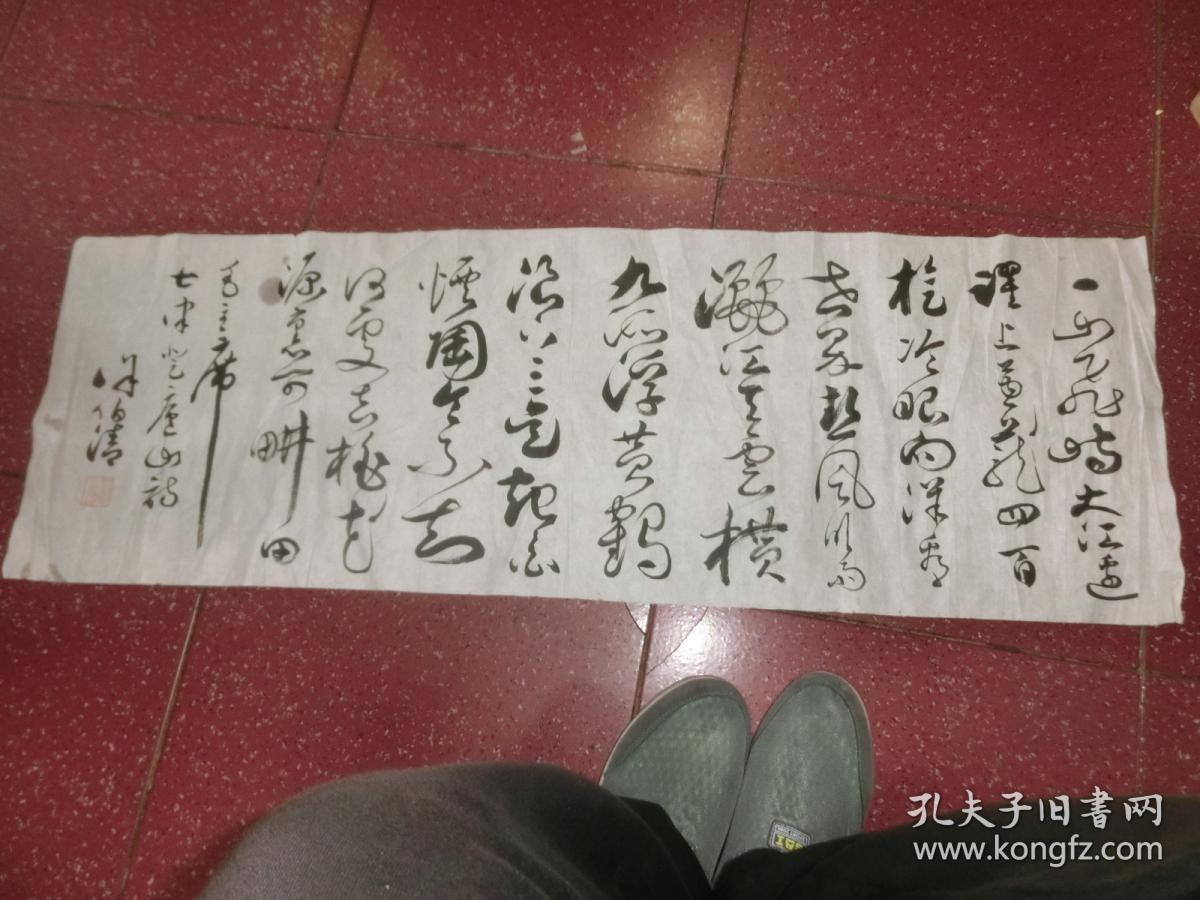 一山飞峙大江边
跃上葱茏四百
旋冷眼向洋看
世界热风吹雨
洒江天云横
九派浮黄鹤
浪下三吴起白
烟陶令不知
何处去桃花
源里可耕田
毛主席
七律登庐山诗
孔夫子旧书网
www.kongfz.com